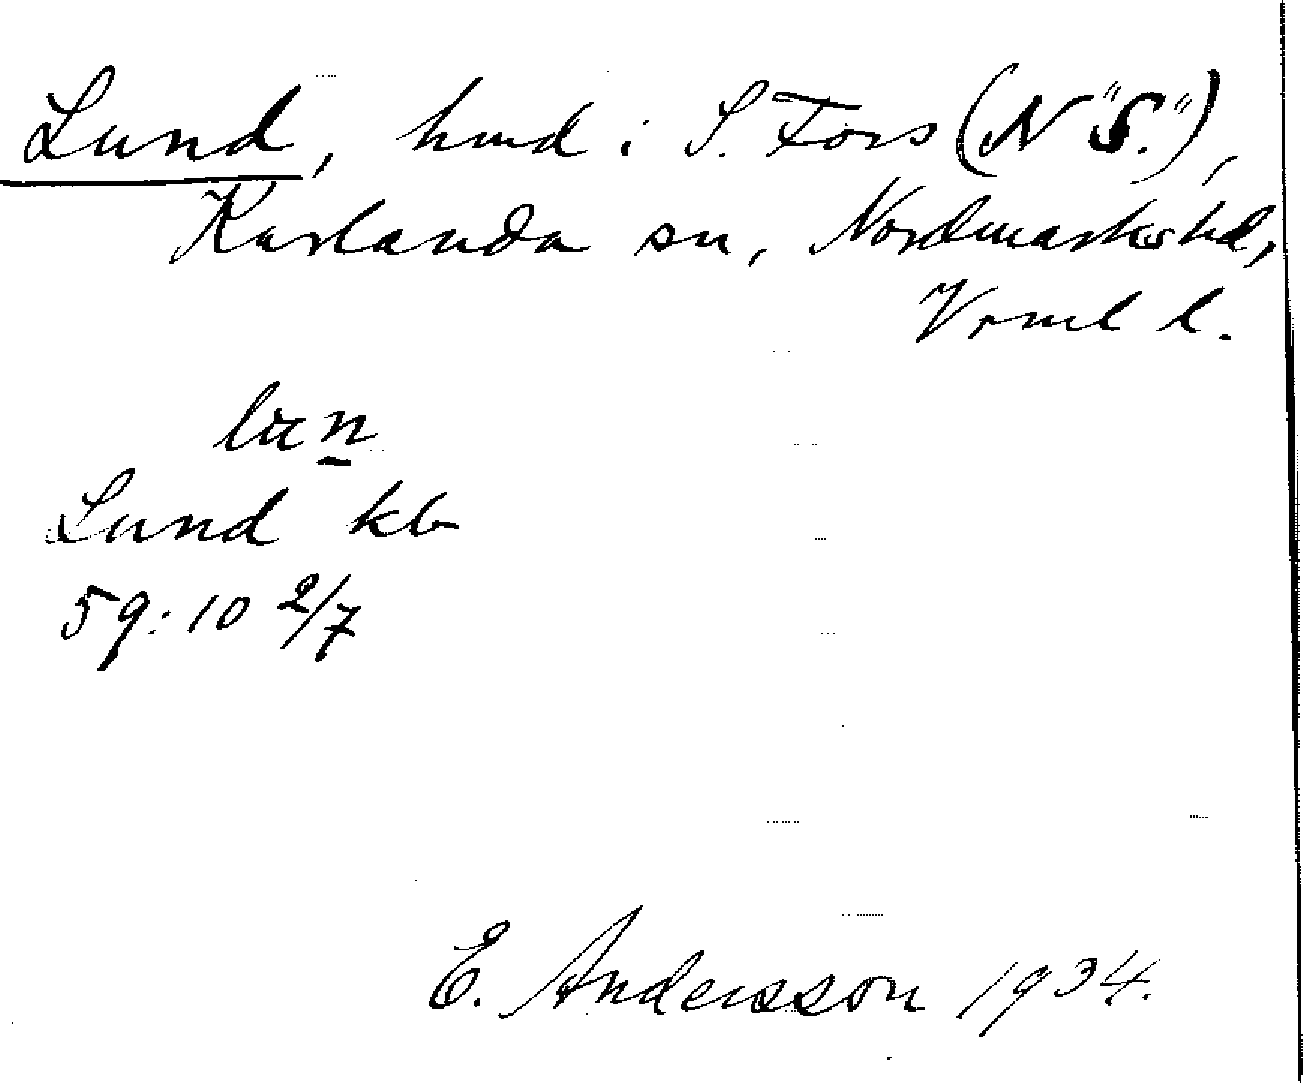 Lund, hmd i S. Fors (N "S."),
Karlanda sn, Nordmarks hd,
Vrml l.
Lund kb
59:10 2/7
E. Andersson 1934.